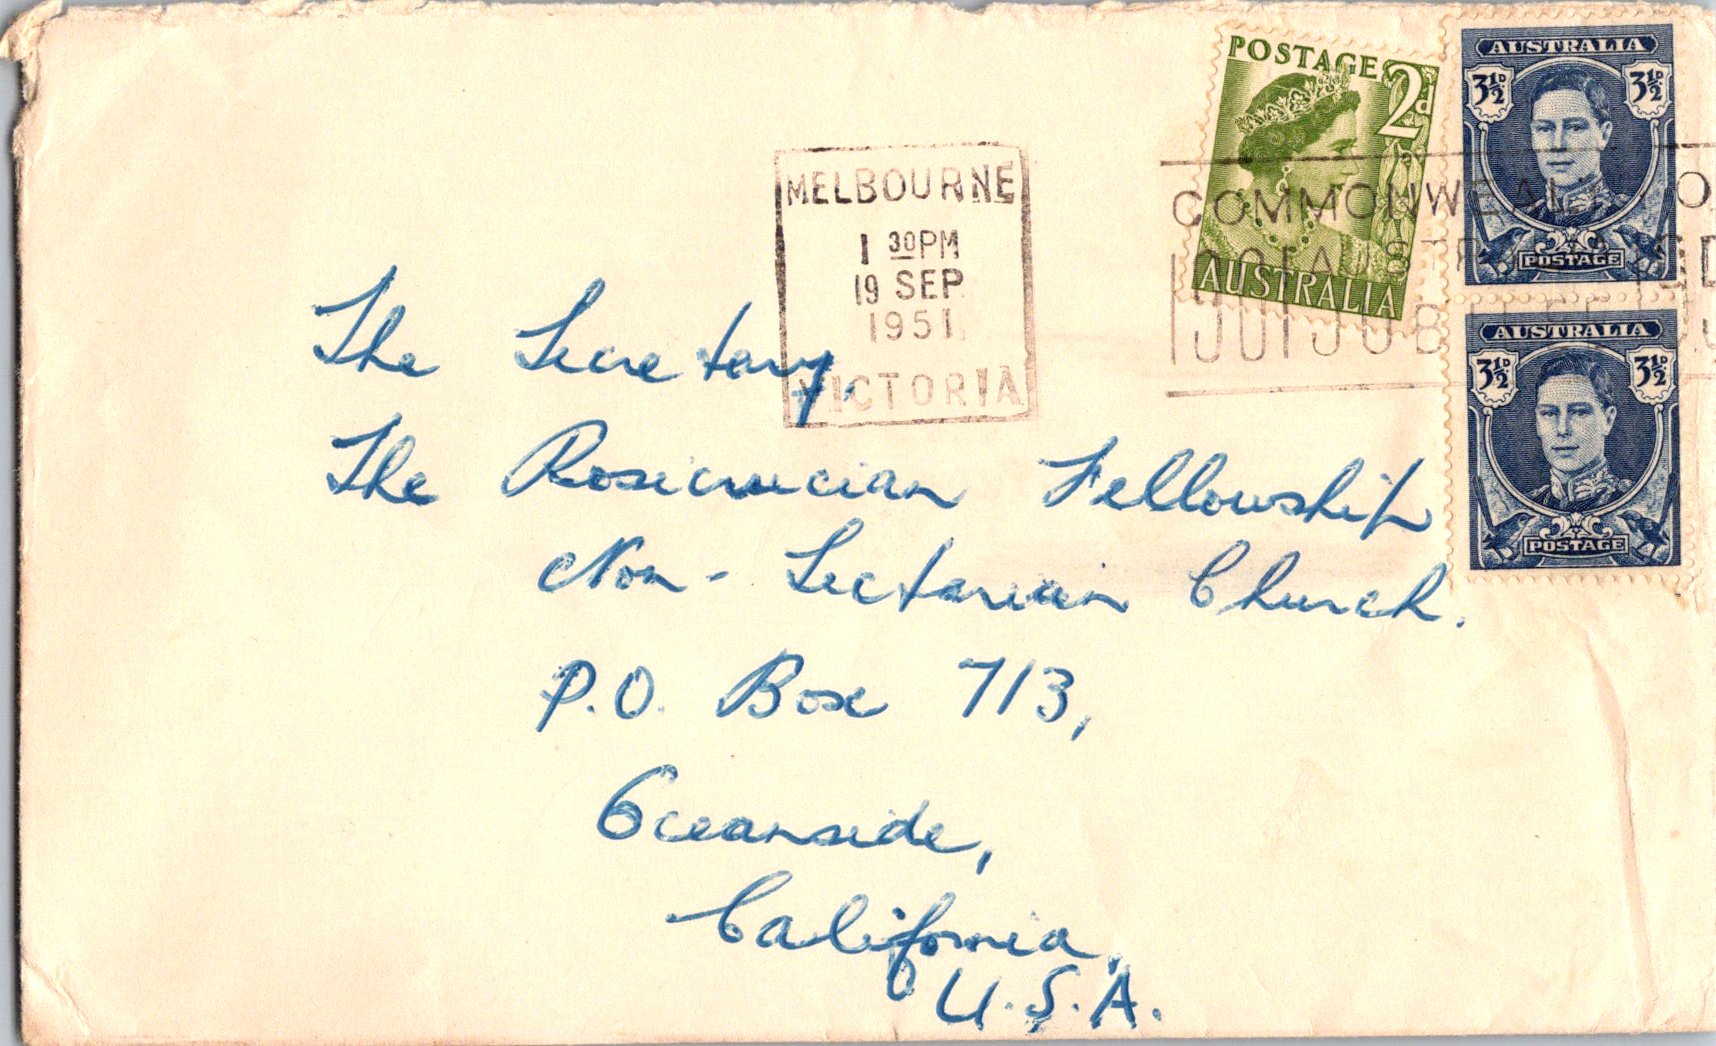 POSTAGE
2d
AUSTRALIA
AUSTRALIA
3½D 3½D
POSTAGE
AUSTRALIA
3½D 3½D
POSTAGE
MELBOURNE
1 30PM
19 SEP
1951
VICTORIA
COMMONWEALTH
JUBILEE
The Secretary,
The Rosicrucian Fellowship
Non - Sectarian Church.
P.O. Box 713,
Oceanside,
California,
U.S.A.